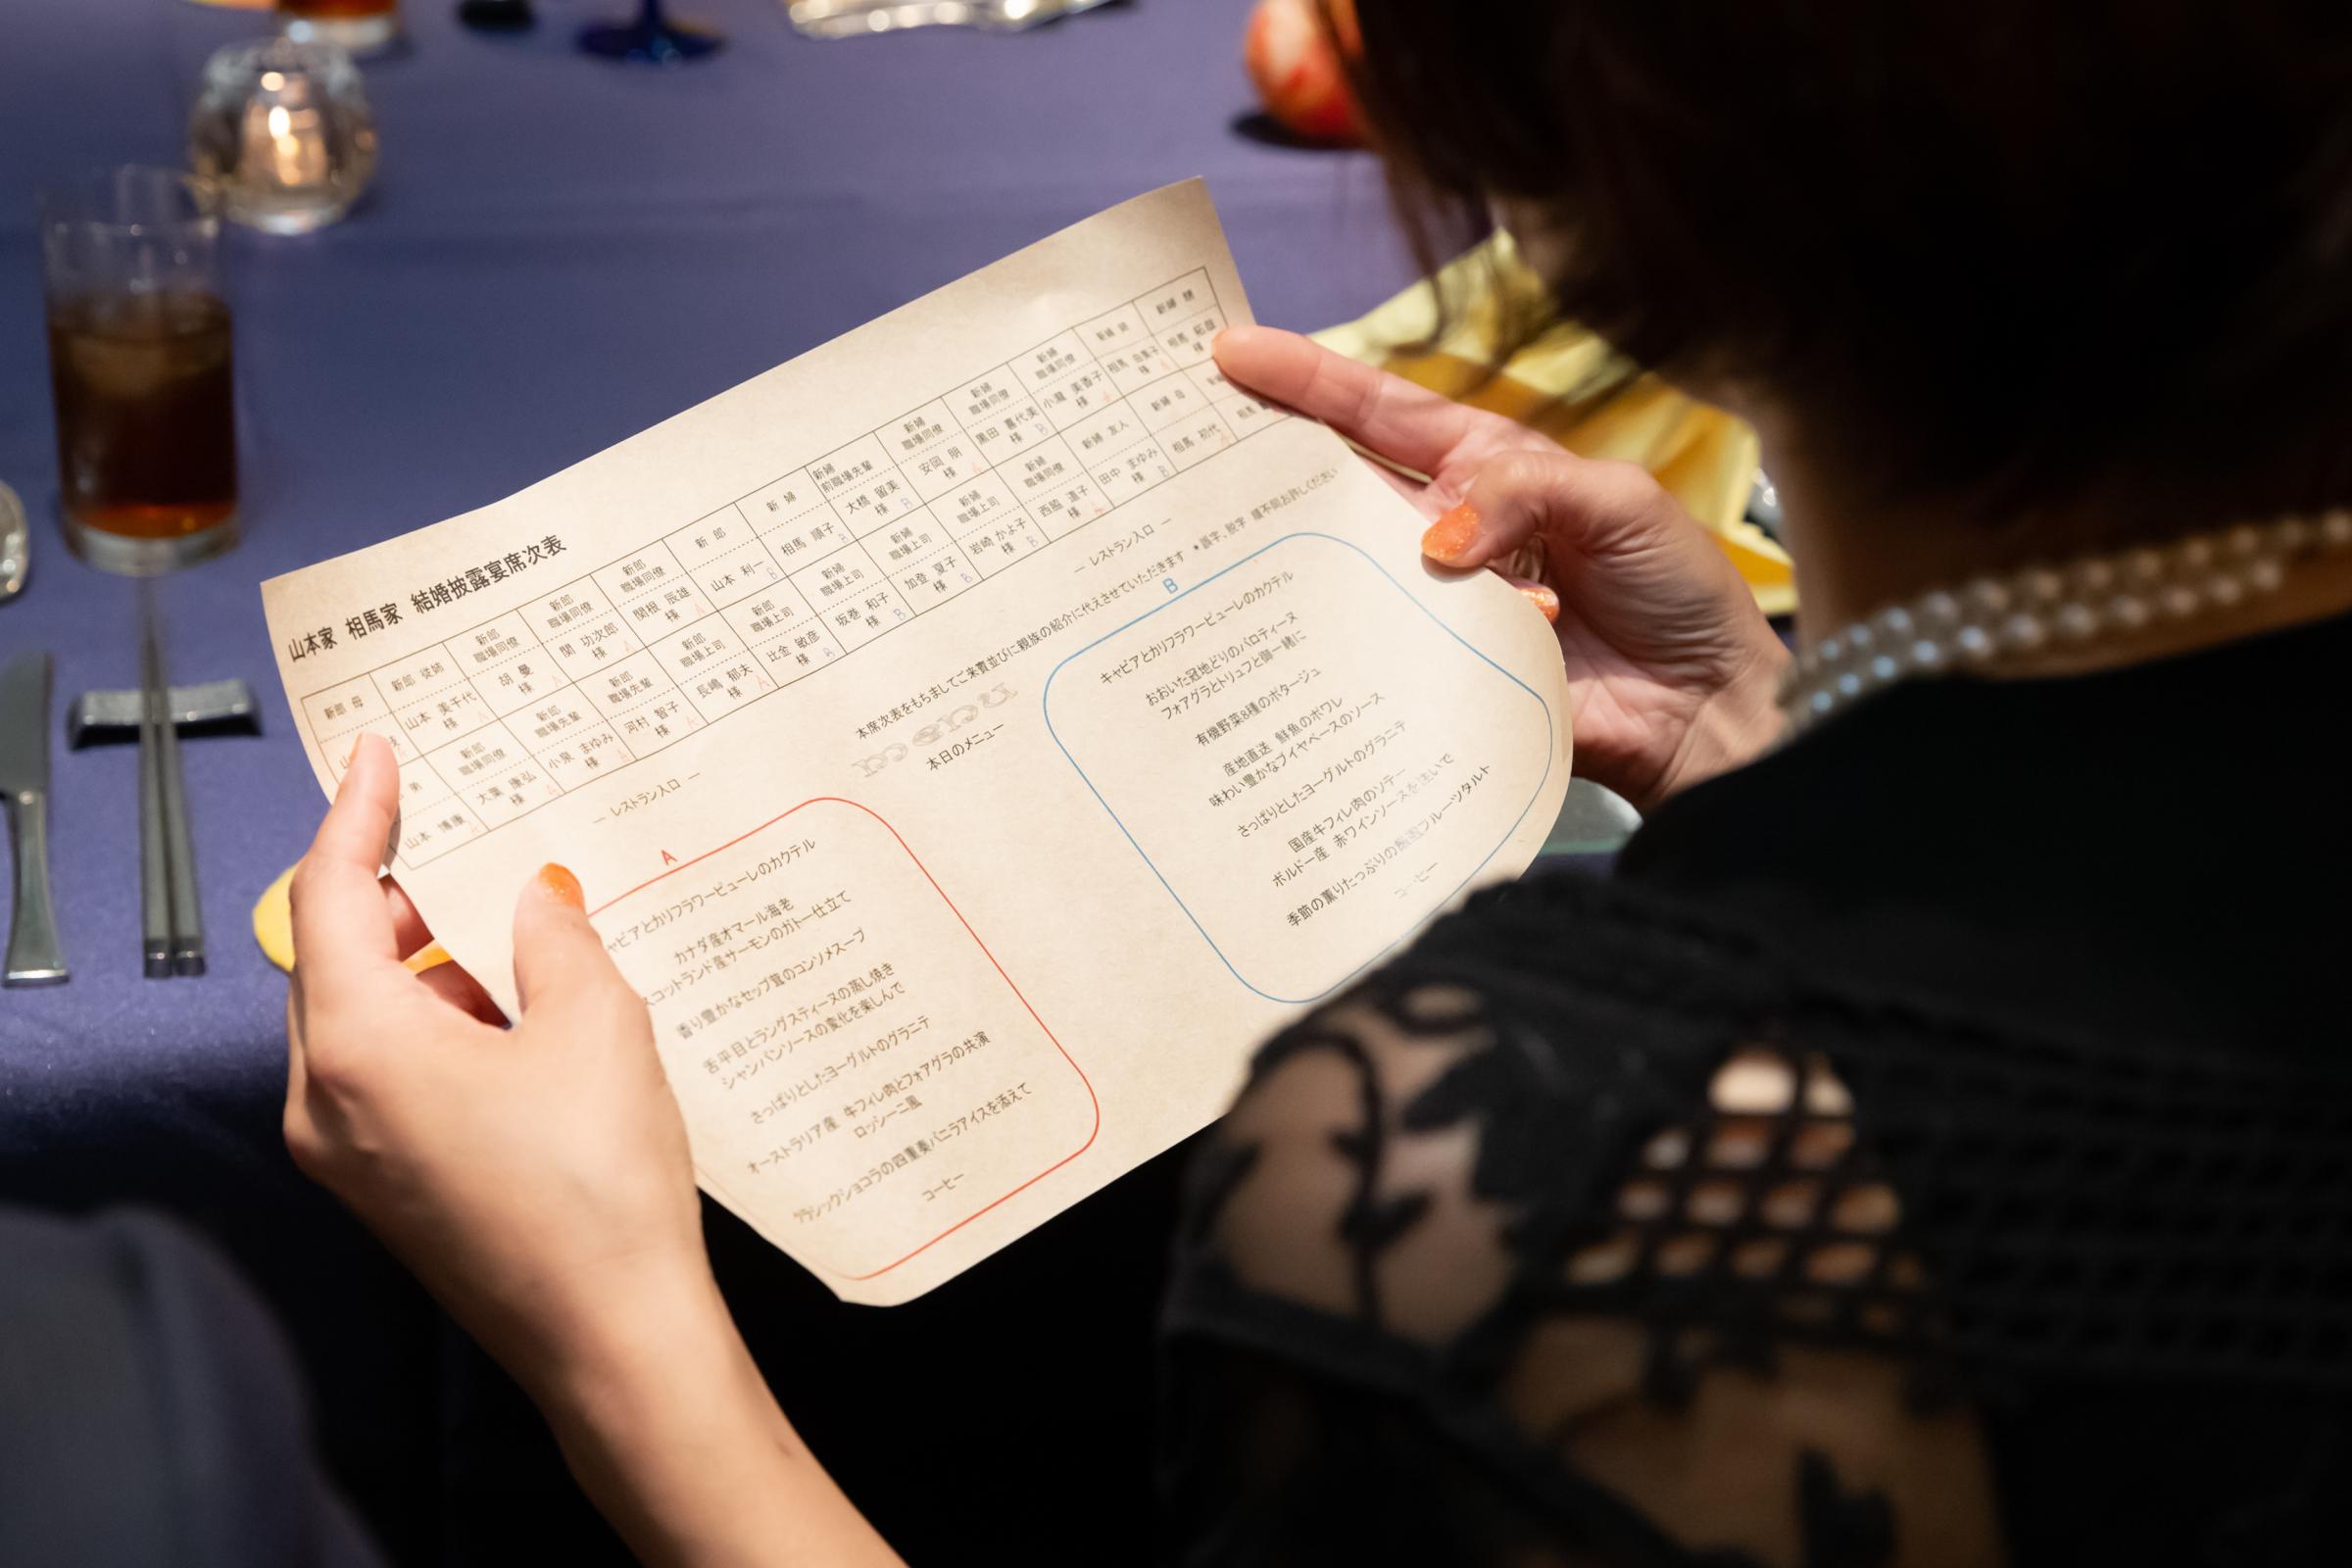 山本家 相馬家 結婚披露宴席次表
新郎 母
新郎 従姉
山本 美千代
様 A
新郎
職場同僚
胡 曼
様 A
新郎
職場同僚
関 功次郎
様 A
新郎
職場同僚
関根 辰雄
様 A
新 郎
山本 利一
B
新 婦
相馬 順子
B
新婦
前職場先輩
大橋 留美
様 B
新婦
職場同僚
安岡 朋
様 A
新婦
職場同僚
黒田 喜代美
様 B
新婦
職場同僚
小瀧 美香子
様 A
相馬 由美子
様 A
新婦 甥
相馬 拓哉
様
山本 博康
新郎
職場同僚
大葉 康弘
様 A
新郎
職場先輩
小泉 まゆみ
様 A
新郎
職場先輩
河村 智子
様 A
新郎
職場上司
長嶋 郁夫
様 A
新郎
職場上司
比金 敏彦
様 A
新婦
職場上司
坂巻 和子
様 B
新婦
職場上司
加登 夏子
様 B
新婦
職場上司
岩崎 かよ子
様 B
新婦
職場同僚
西脇 道子
様 A
新婦 友人
田中 まゆみ
様 B
新婦 母
相馬 初代
A
相馬
― レストラン入口 ―
― レストラン入口 ―
本席次表をもちましてご来賓並びに親族の紹介に代えさせていただきます *誤字、脱字 順不同お許しください
menu
本日のメニュー
A
ャビアとカリフラワーピューレのカクテル
カナダ産オマール海老
スコットランド産サーモンのガトー仕立て
香り豊かなセップ茸のコンソメスープ
舌平目とラングスティーヌの蒸し焼き
シャンパンソースの変化を楽しんで
さっぱりとしたヨーグルトのグラニテ
オーストラリア産 牛フィレ肉とフォアグラの共演
ロッシーニ風
クラシックショコラの四重奏バニラアイスを添えて
コーヒー
B
キャビアとカリフラワーピューレのカクテル
おおいた冠地どりのバロティーヌ
フォアグラとトリュフと御一緒に
有機野菜8種のポタージュ
産地直送 鮮魚のポワレ
味わい豊かなブイヤベースのソース
さっぱりとしたヨーグルトのグラニテ
国産牛フィレ肉のソテー
ボルドー産 赤ワインソースを注いで
季節の薫りたっぷりの厳選フルーツタルト
コーヒー